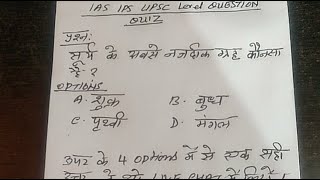 IAS IPS UPSC Level QUESTION
QUIZ
प्रश्न:
सूर्य के सबसे नजदीक ग्रह कौनसा
है ?
OPTIONS
A. शुक्र B. बुध
C. पृथ्वी D. मंगल
के 4 options में से एक सही
LIVE CHAT में